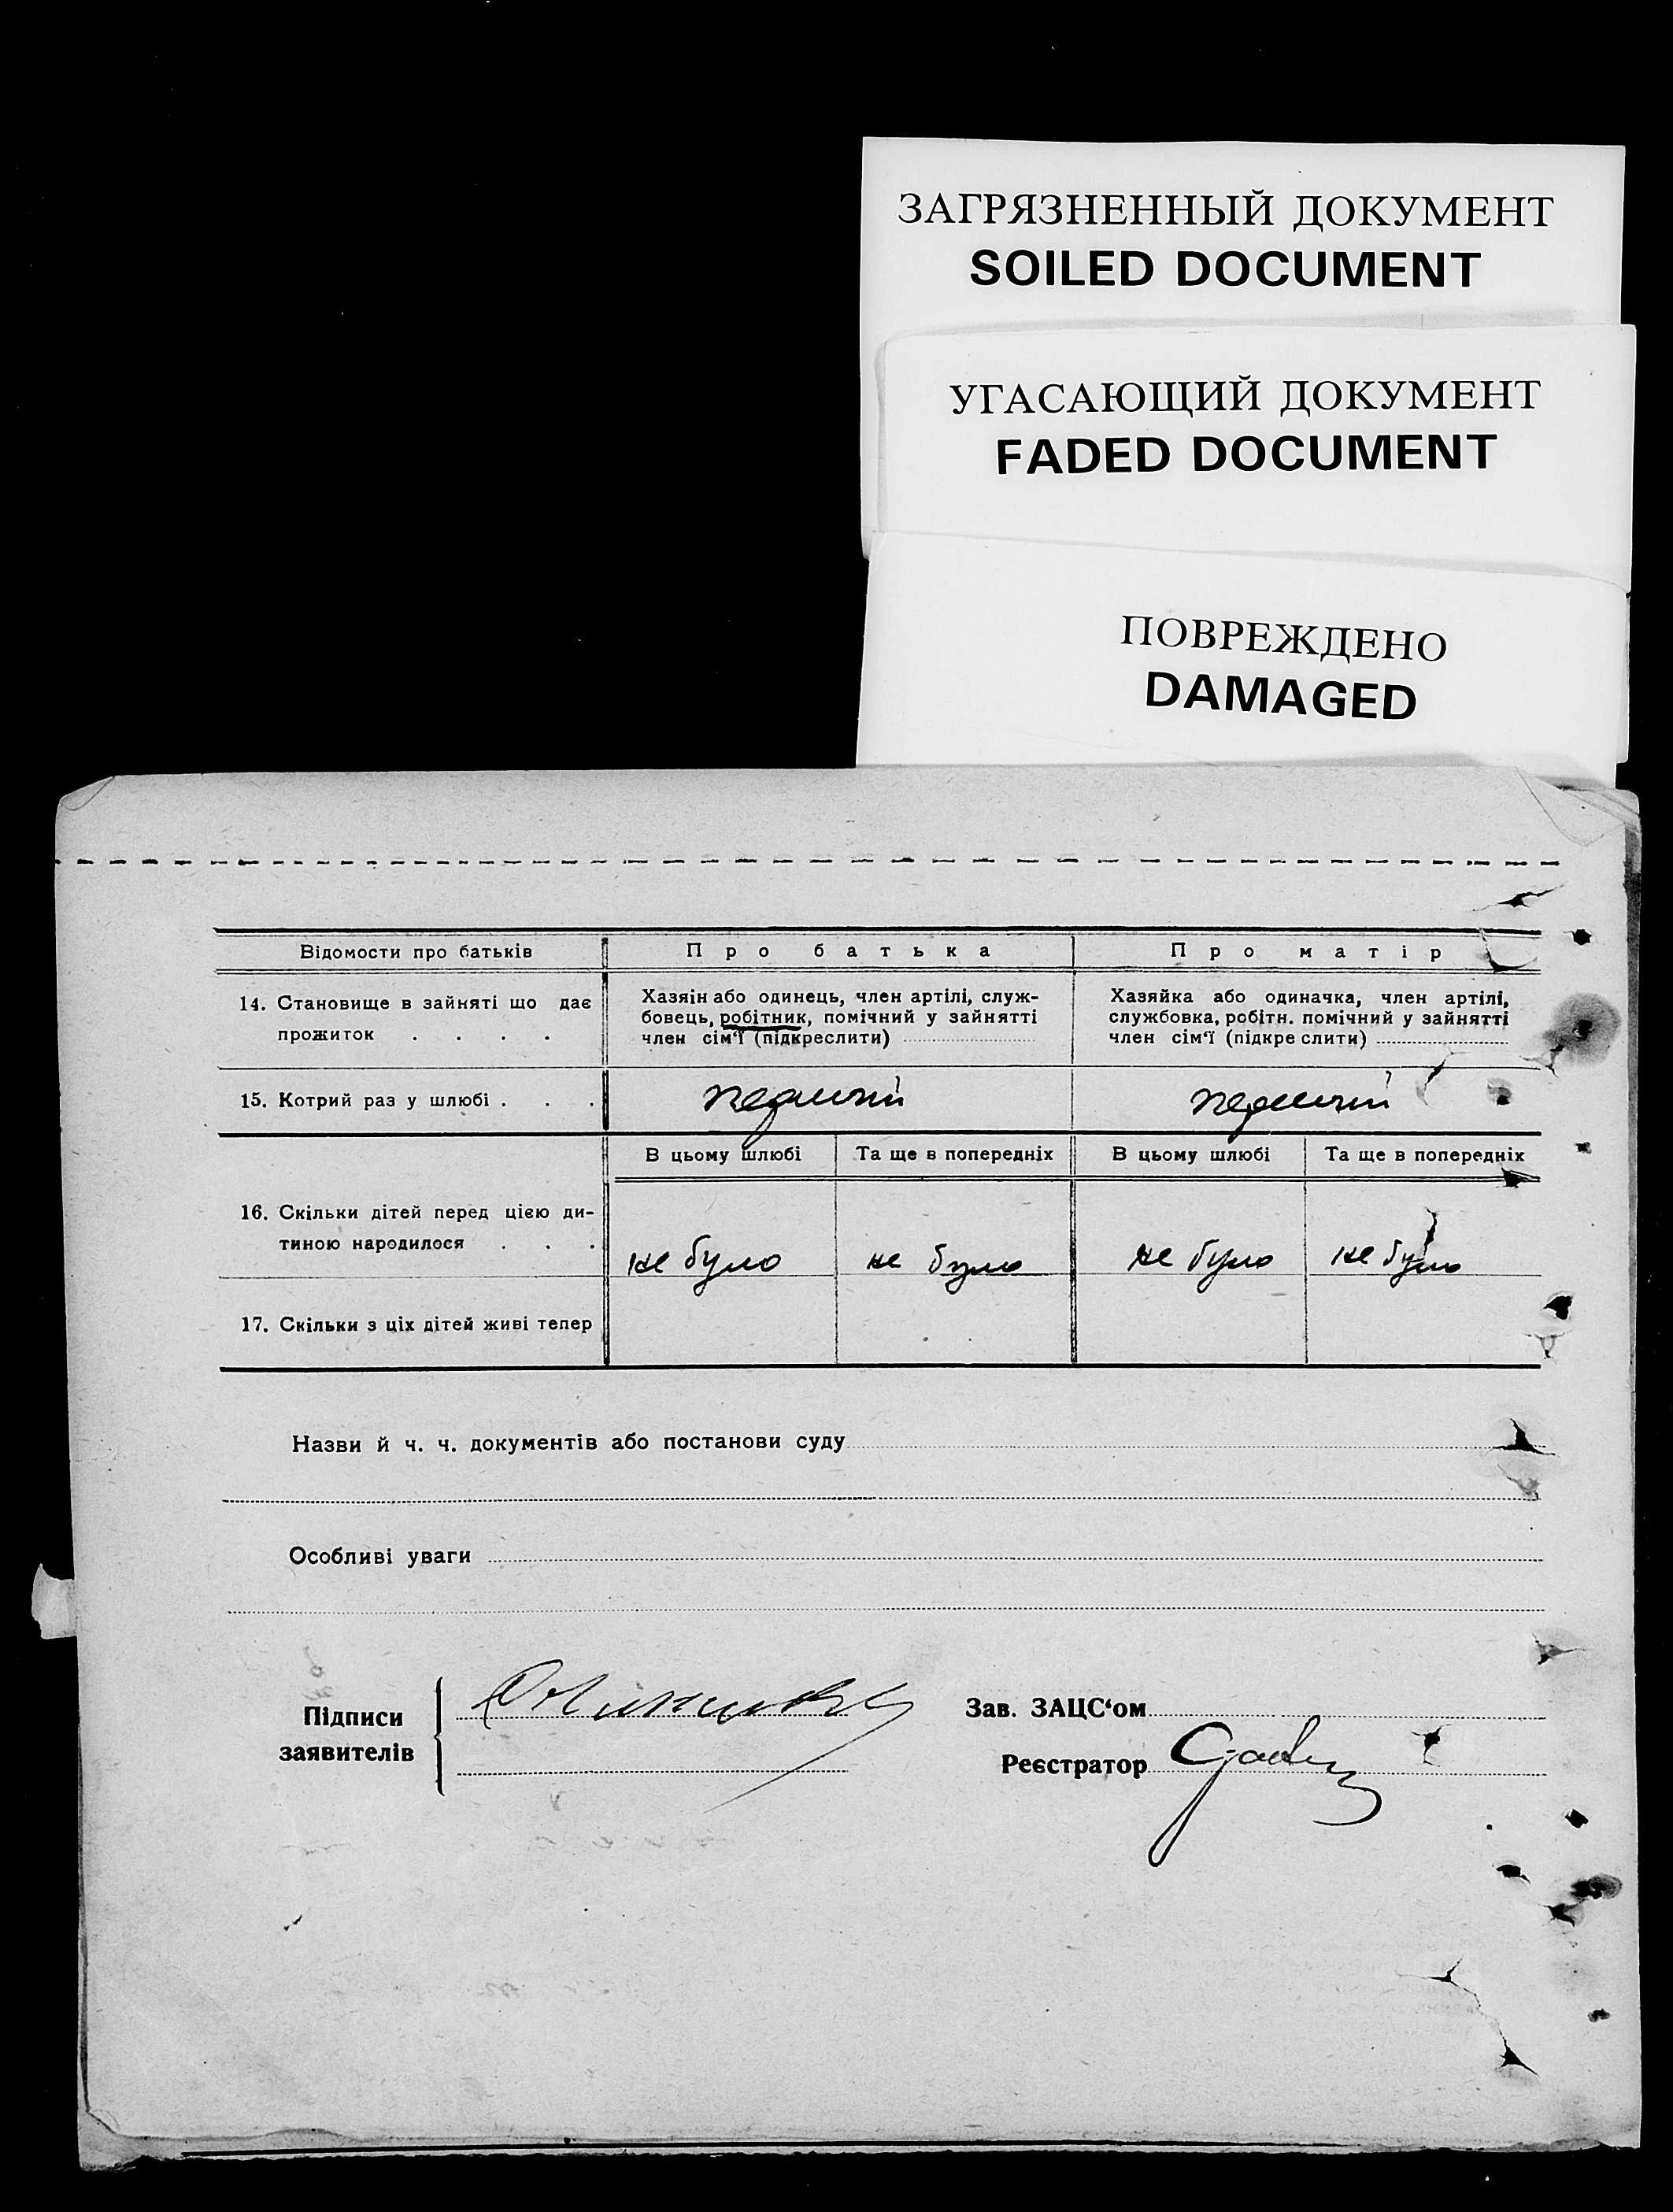 ЗАГРЯЗНЕННЫЙ ДОКУМЕНТ
SOILED DOCUMENT
УГАСАЮЩИЙ ДОКУМЕНТ
FADED DOCUMENT
ПОВРЕЖДЕНО
DAMAGED
Відомости про батьків Про батька Про матір
14. Становище в зайняті що дає прожиток . . . .
Хазяін або одинець, член артілі, служ-
бовець, робітник, помічний у зайнятті
член сім‘ї (підкреслити)
Хазяйка або одиначка, член артілі,
службовка, робітн. помічний у зайнятті
член сім‘ї (підкре слити)
15. Котрий раз у шлюбі . . . перший перший
В цьому шлюбі Та ще в попередніх В цьому шлюбі Та ще в попередніх
16. Скільки дітей перед цією ди-
тиною народилося . . . не було не було не було не було
17. Скільки з ціх дітей живі тепер
Назви й ч. ч. документів або постанови суду
Особливі уваги
Підписи
заявителів
Зав. ЗАЦС‘ом
Реєстратор